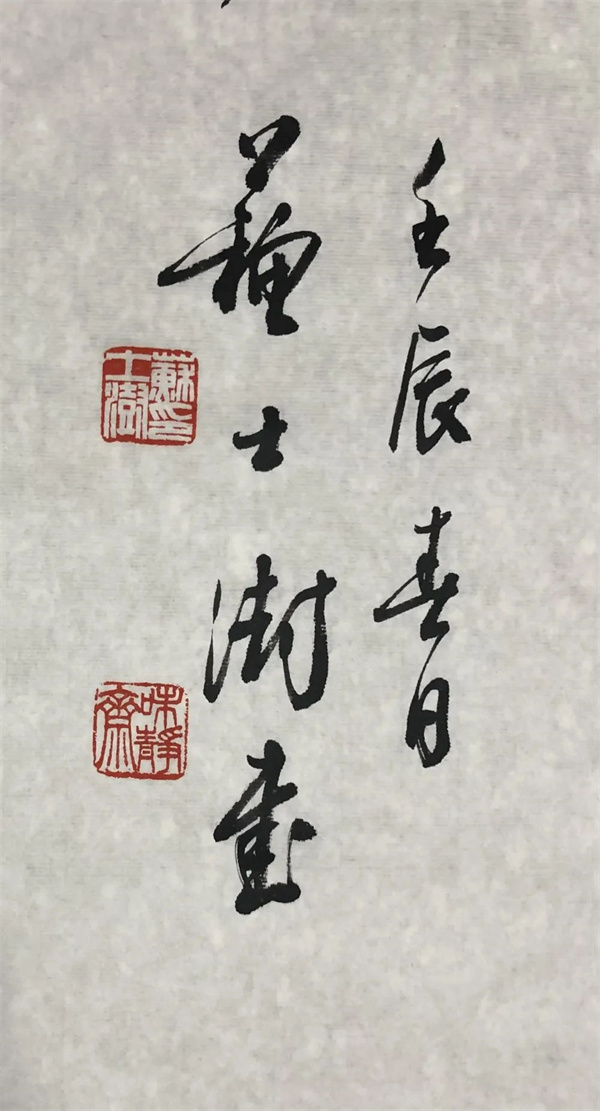 壬辰春日
蘇士澍書
蘇士澍印
味靜齋